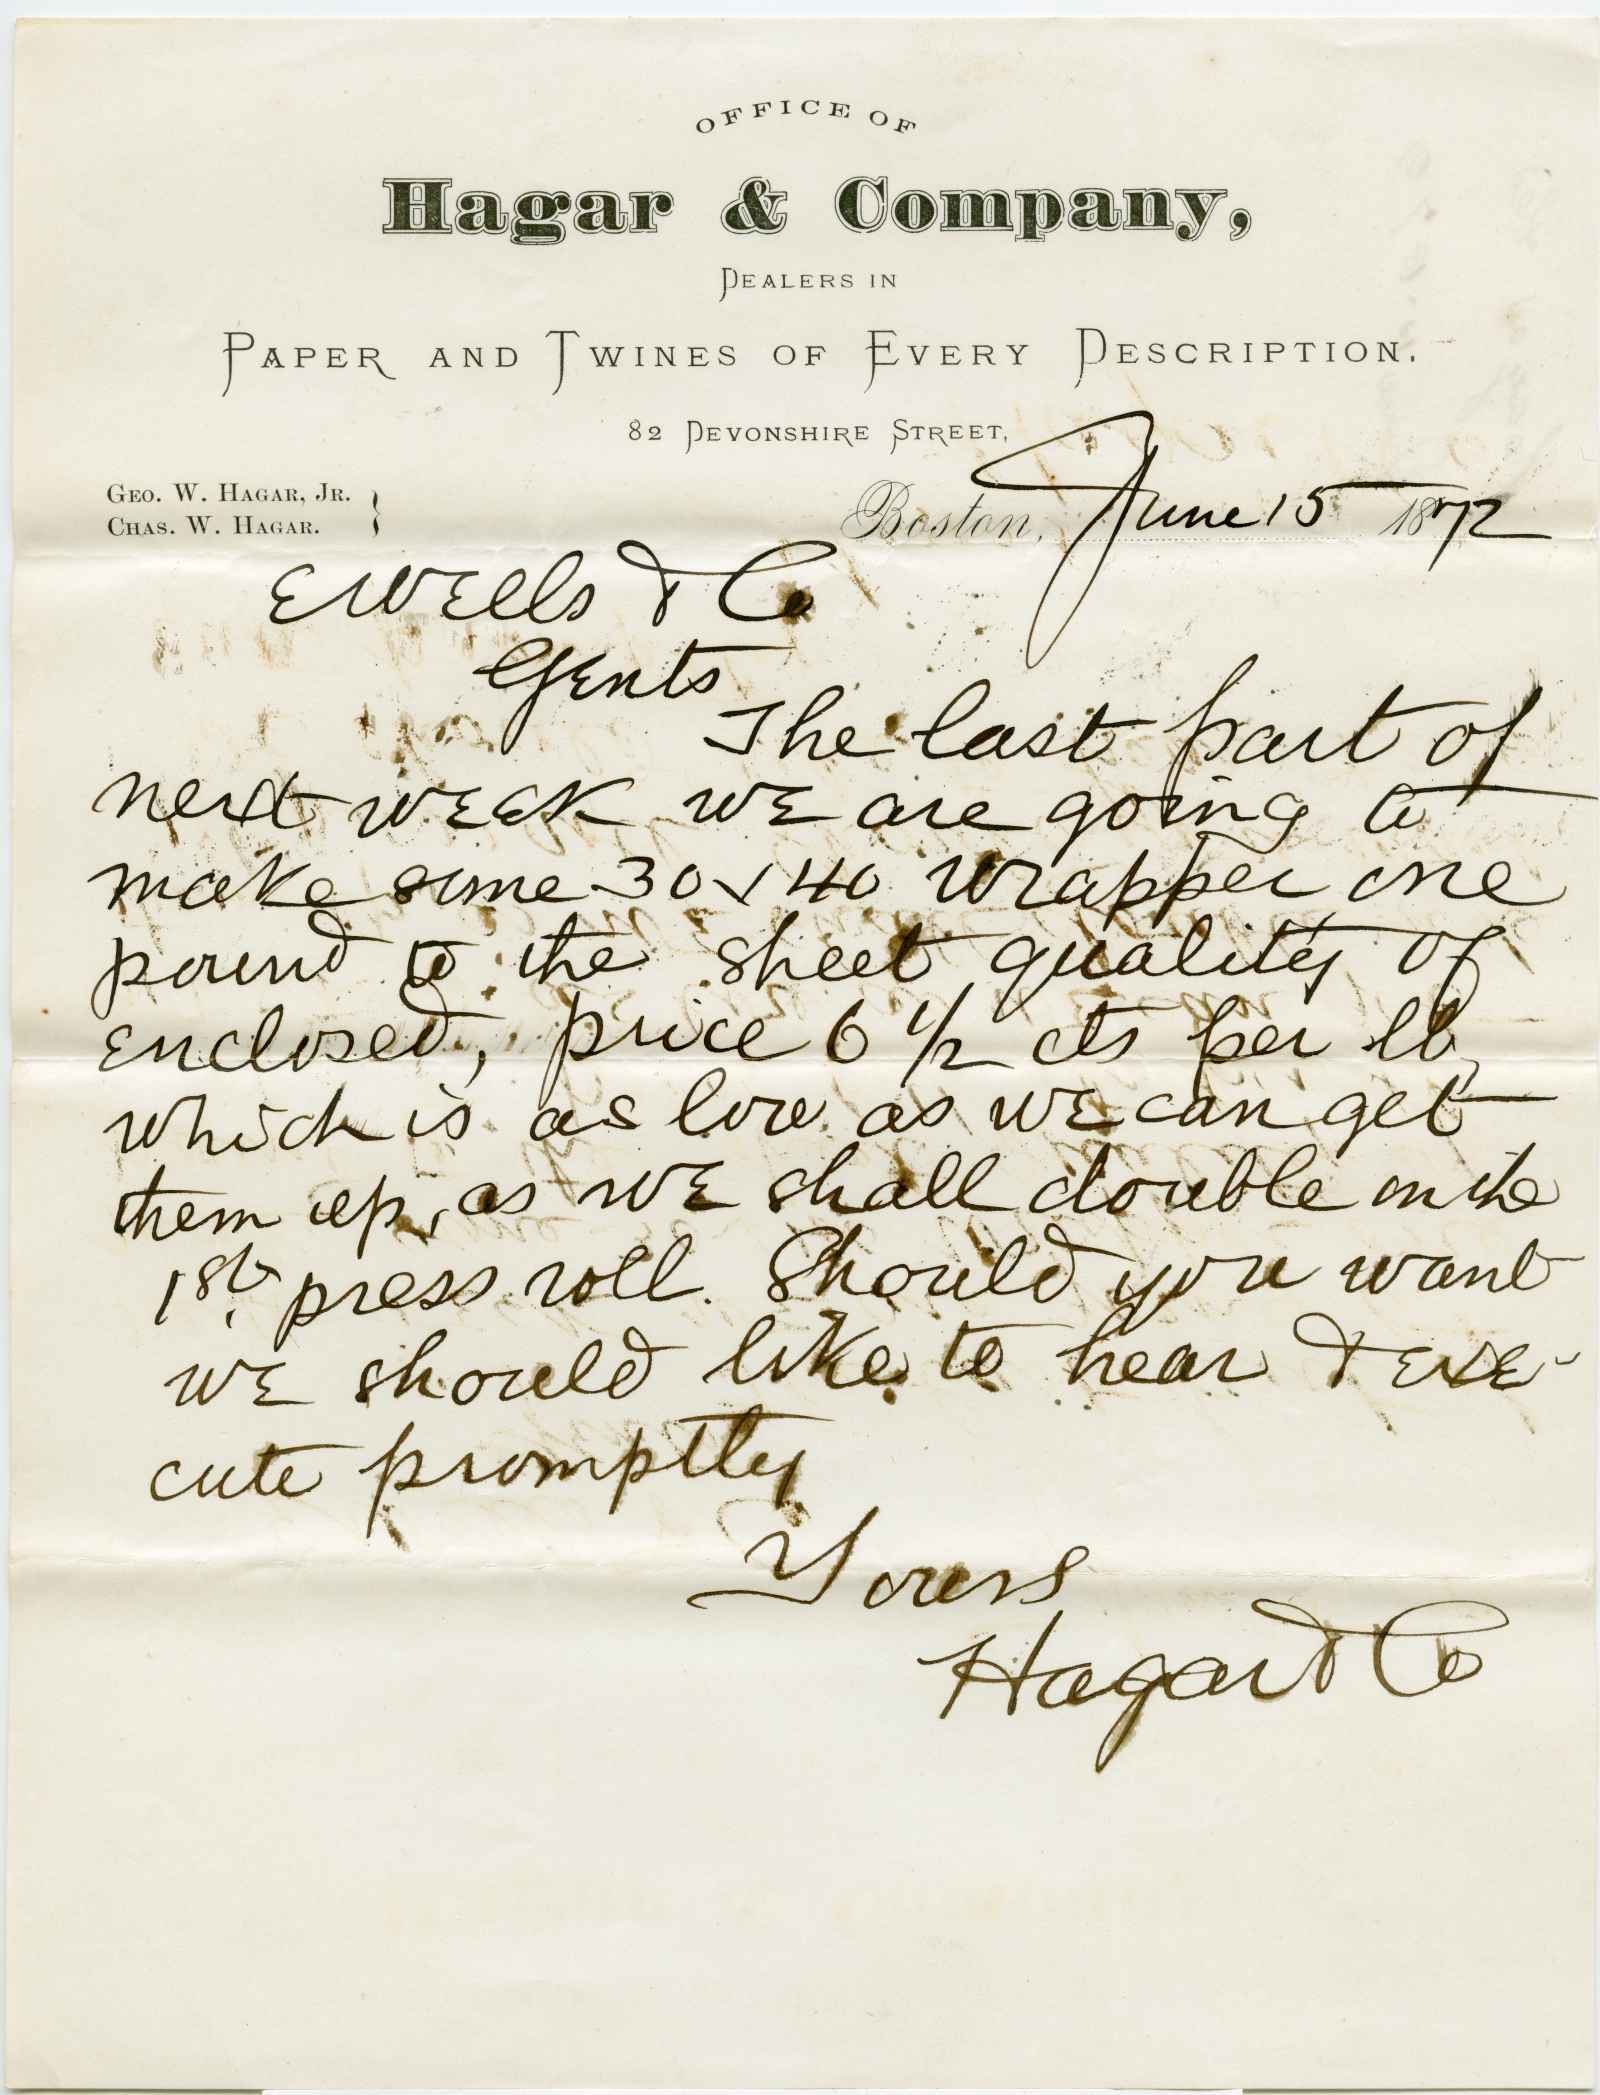 OFFICE OF
Hagar & Company,
DEALERS IN
PAPER AND TWINES OF EVERY DESCRIPTION.
82 DEVONSHIRE STREET,
GEO. W. HAGAR, JR.
CHAS. W. HAGAR.
Boston, June 15 1872
E Wells & Co
Gents
The last part of
next week we are going to
make some 30 x 40 wrapper one
pound to the sheet quality of
enclosed, price 6 1/2 cts per lb,
which is as low as we can get
them up, as we shall double on the
1st. press roll. Should you want
we should like to hear & exe-
cute promptly
Yours
Hagar & Co